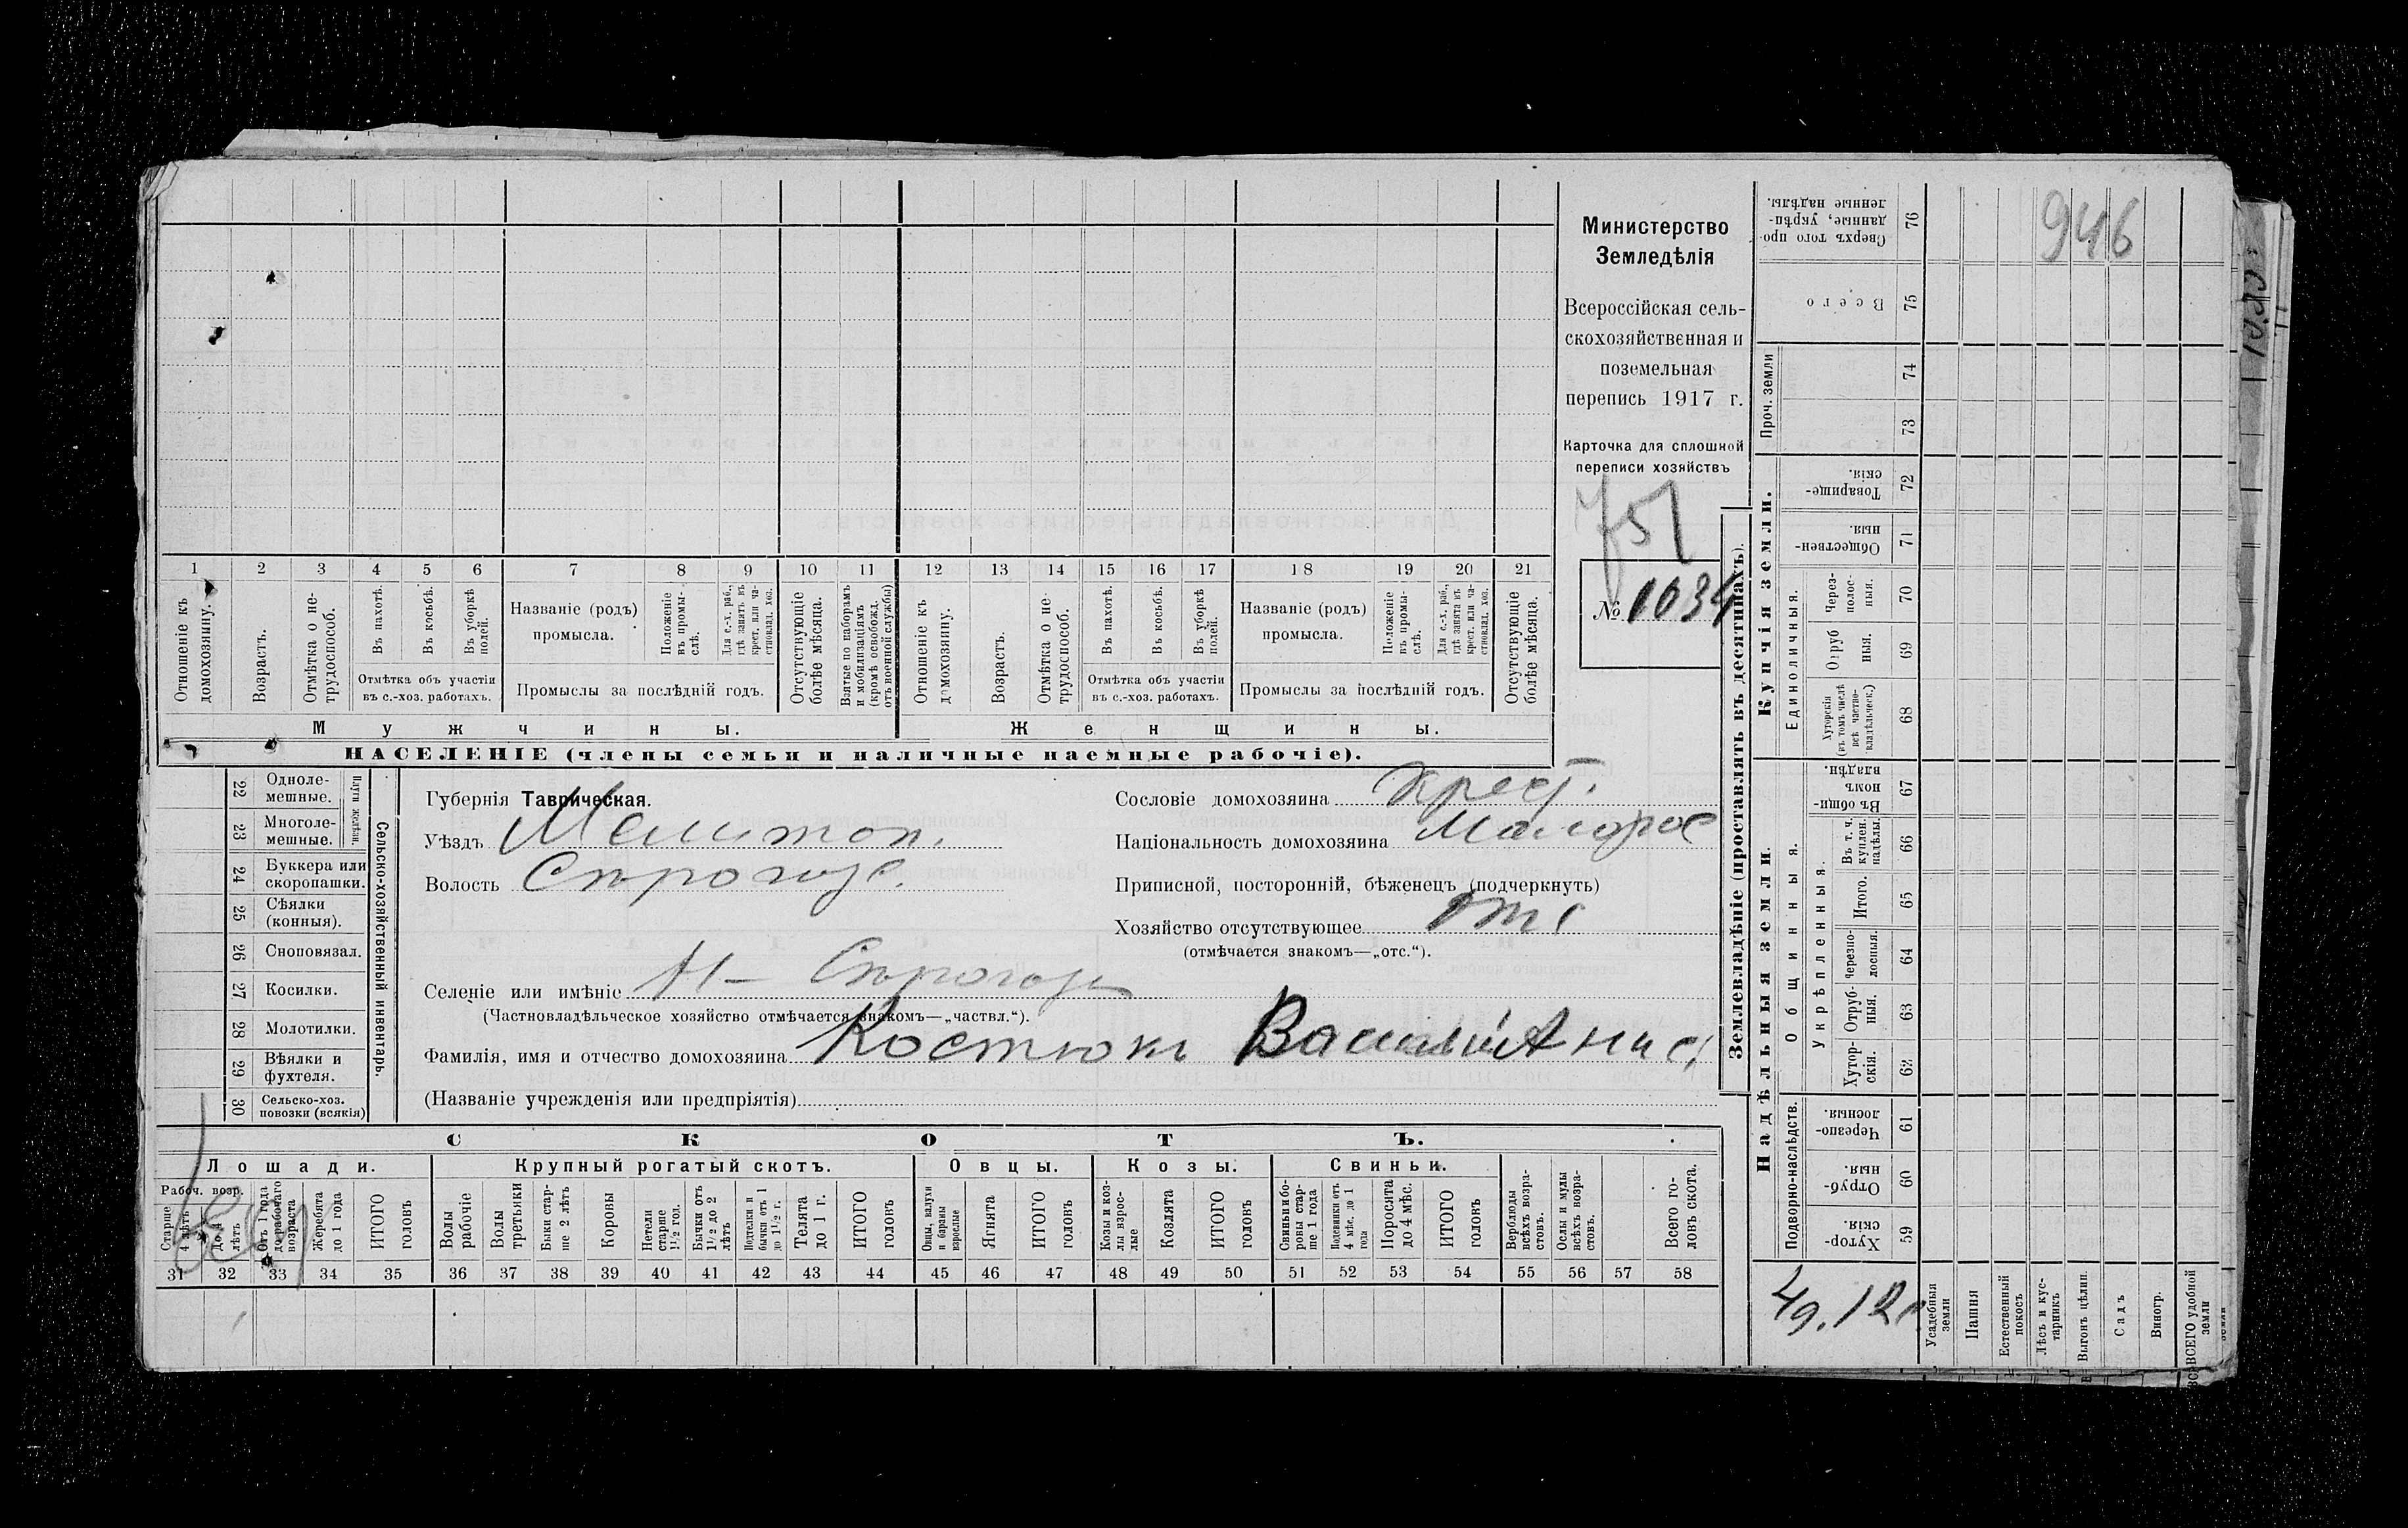 Министерство
Земледѣлія
Всероссійская сель-
скохозяйственная и
поземельная
перепись 1917 г.
Карточка для сплошной
переписи хозяйствъ
751
№ 1034
946
1 2 3 4 5 6 7 8 9 10 11 12 13 14 15 16 17 18 19 20 21
Отношеніе къ домохозяину.
Возрастъ.
Отмѣтка о не-трудоспособ.
Въ пахотѣ.
Въ косьбѣ.
Въ уборкѣ полей.
Отмѣтка объ участіи
въ с.-хоз. работахъ.
Названіе (родъ)
промысла.
Положеніе въ промы-слѣ.
Для с.-х. раб., гдѣ занятъ въ крест. или ча-стновлад. хоз.
Промыслы за послѣдній годъ.
Отсутствующіе болѣе мѣсяца.
Взятые по наборамъ и мобилизаціямъ (кромѣ освобожд. отъ военной службы)
Отношеніе къ домохозяину.
Возрастъ.
Отмѣтка о не-трудоспособ.
Въ пахотѣ.
Въ косьбѣ.
Въ уборкѣ полей.
Отмѣтка объ участіи
въ с.-хоз. работахъ.
Названіе (родъ)
промысла.
Положеніе въ промы-слѣ.
Для с.-х. раб., гдѣ занята въ крест. или ча-стновлад. хоз.
Промыслы за послѣдній годъ.
Отсутствующіе болѣе мѣсяца.
Мужчины. Женщины.
НАСЕЛЕНІЕ (члены семьи и наличные наемные рабочіе).
22 Одноле-мешные.
23 Многоле-мешные.
Плуги желѣзн.
24 Буккера или скоропашки.
25 Сѣялки (конныя).
26 Сноповязал.
27 Косилки.
28 Молотилки.
29 Вѣялки и фухтеля.
30 Сельско-хоз. повозки (всякія)
Сельско-хозяйственный инвентарь.
Губернія Таврическая.
Уѣздъ Мелитоп.
Волость Сѣрогоз.
Сословіе домохозяина крест.
Національность домохозяина Малорос
Приписной, посторонній, бѣженецъ (подчеркнуть)
Хозяйство отсутствующее отс
(отмѣчается знакомъ—„отс.“).
Селеніе или имѣніе Н- Сѣрогозы
(Частновладѣльческое хозяйство отмѣчается знакомъ—„частвл.“).
Фамилія, имя и отчество домохозяина Костюкъ Василій Анис
(Названіе учрежденія или предпріятія)
СКОТЪ.
Лошади. Крупный рогатый скотъ. Овцы. Козы. Свиньи.
Рабоч. возр.
Старше 4 лѣтъ
До 4 лѣтъ
Отъ 1 года до рабочаго возраста
Жеребята до 1 года
ИТОГО головъ
Волы рабочіе
Волы третьяки
Быки стар-ше 2 лѣтъ
Коровы
Нетели старше 1½ год.
Бычки отъ 1½ до 2 лѣтъ
Подтелки и бычки отъ 1 до 1½ г.
Телята до 1 г.
ИТОГО головъ
Овцы, валухи и бараны взрослые
Ягнята
ИТОГО головъ
Козы и коз-лы взрос-лые
Козлята
ИТОГО головъ
Свиньи и бо-ровы стар-ше 1 года
Подсвинки отъ 4 мѣс. до 1 года
Поросята до 4 мѣс.
ИТОГО головъ
Верблюды всѣхъ возра-стовъ.
Ослы и мулы всѣхъ возра-стовъ.
Всего го-ловъ скота.
31 32 33 34 35 36 37 38 39 40 41 42 43 44 45 46 47 48 49 50 51 52 53 54 55 56 57 58
Землевладѣніе (проставлять въ десятинахъ).
Надѣльныя земли.
Купчія земли.
Проч. земли
Сверхъ того про-данные, укрѣп-ленные надѣлы. 76
Всего 75
74
73
Товарище-скія. 72
Обществен-ныя. 71
Единоличныя.
Через-полос-ныя. 70
Отруб ныя. 69
Хуторскія (въ томъ числѣ всѣ частно-владѣльческ.) 68
Общинныя.
Въ общи-номъ владѣн. 67
Укрѣпленныя.
Въ т. ч. куплен. надѣлы. 66
Итого. 65
Черезпо-лосныя. 64
Отруб-ныя. 63
Хутор-скія. 62
Подворно-наслѣдств.
Черезпо-лосныя. 61
Отруб-ныя. 60
Хутор-скія. 59
Усадебныя земли
Пашня
Естественный покосъ
Лѣсъ и кус-тарникъ
Выгонъ цѣлин.
Садъ
Виногр.
ВСЕГО удобной земли